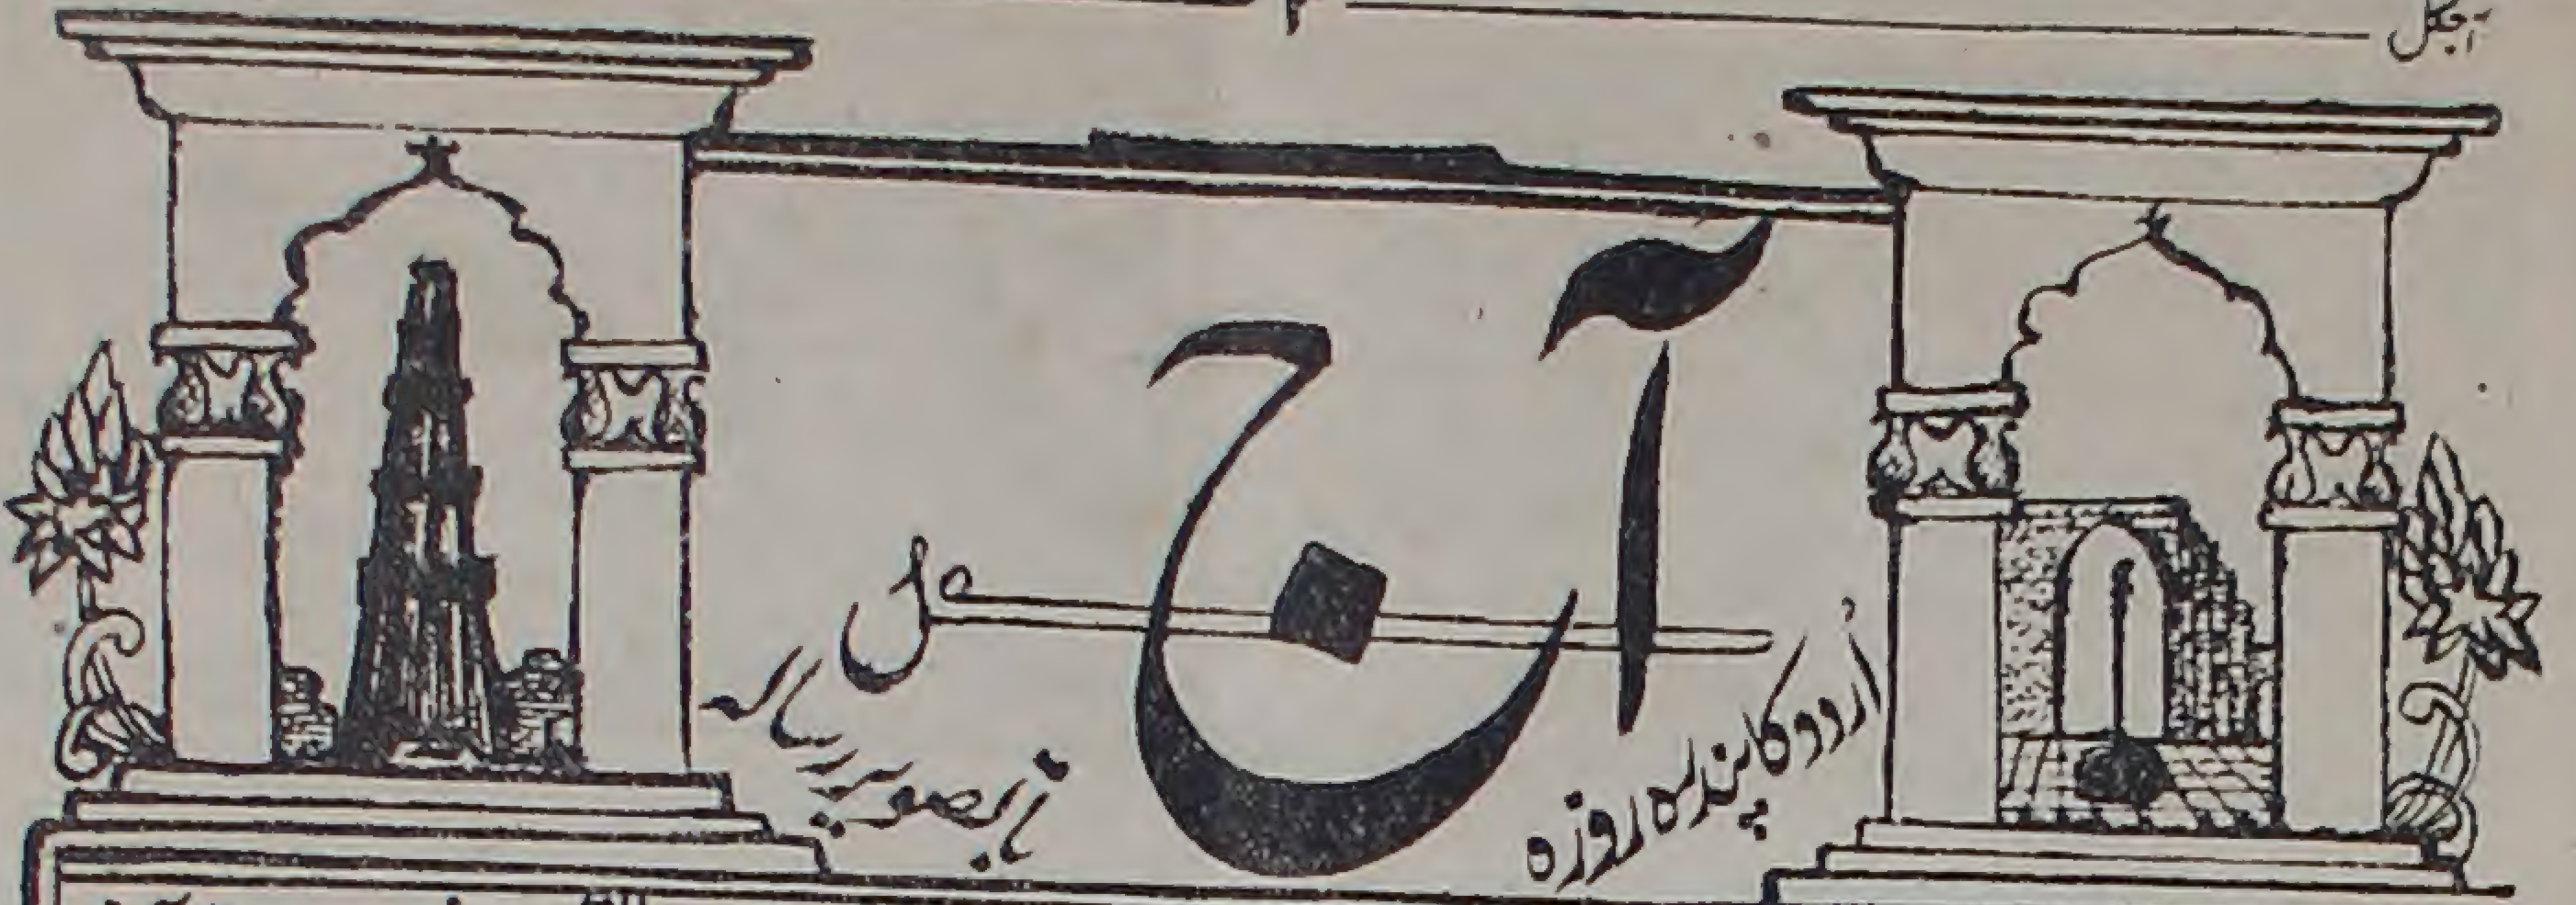 آجکل
آج کل
اردو کا پندرہ روزہ
باتصویر رسالہ